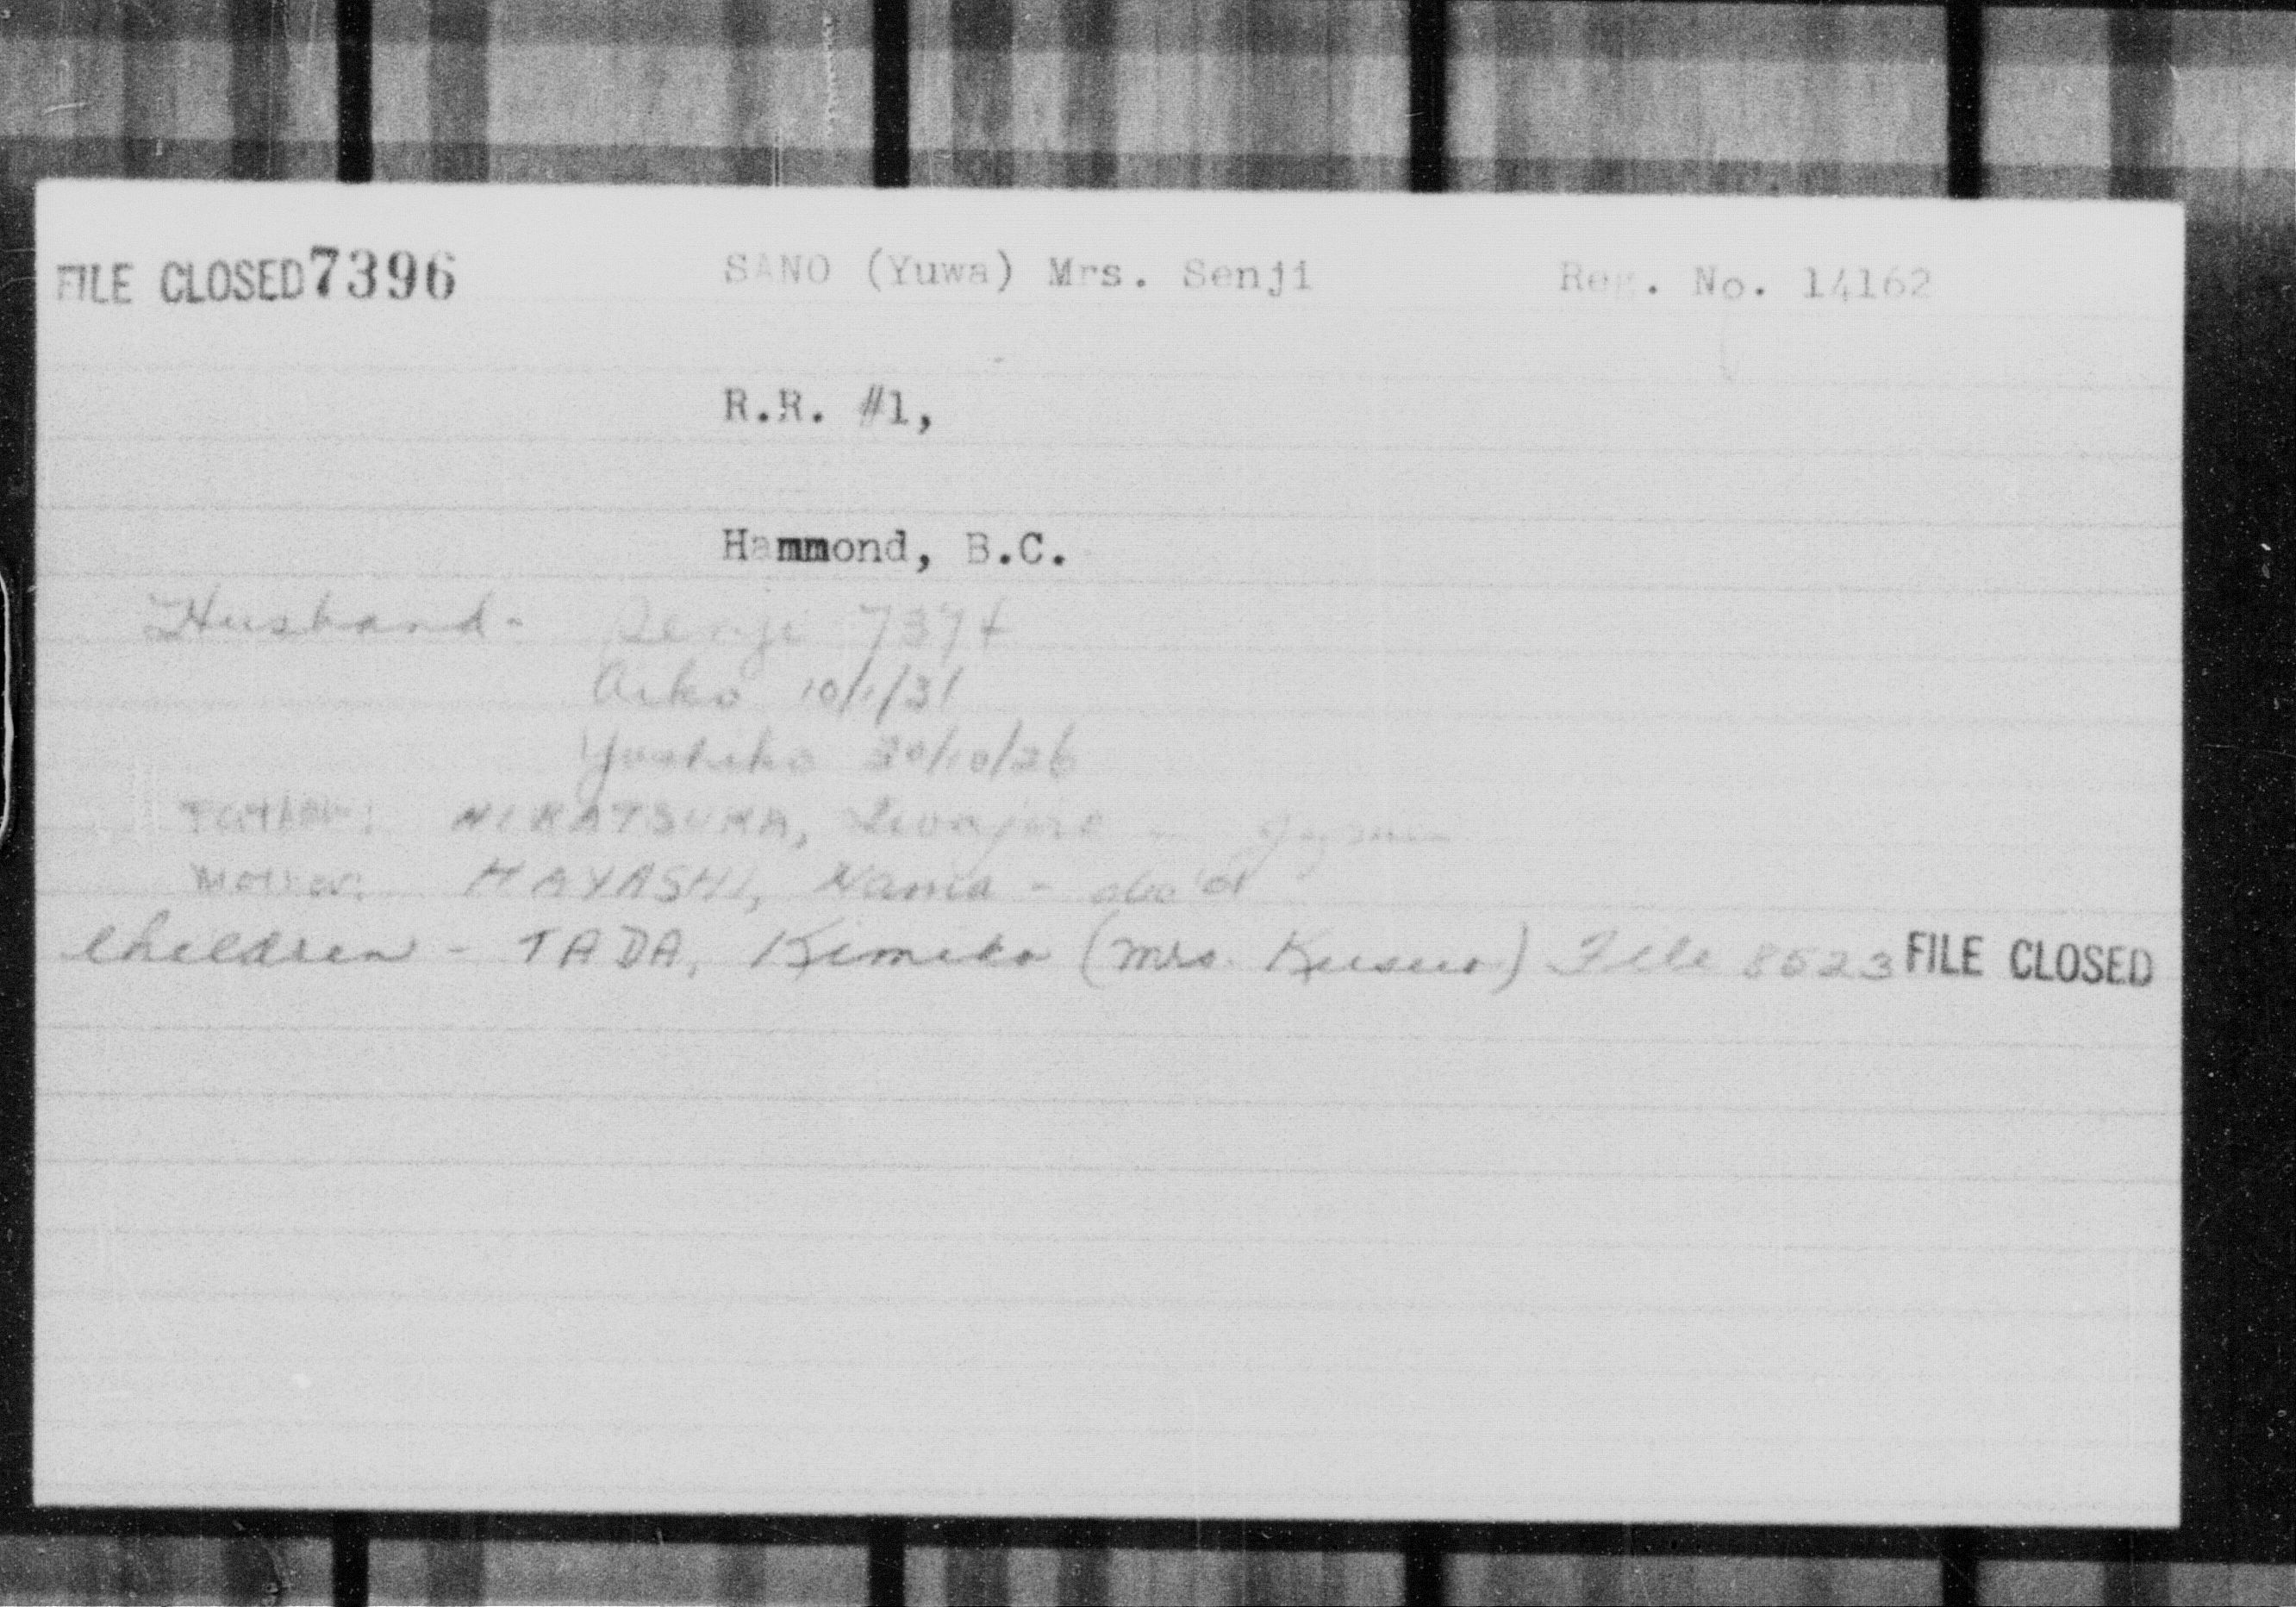 FILE CLOSED 7396 SANO (Yuwa) Mrs. Senji Reg. No. 14162
R.R. #1,
Hammond, B.C.
Husband - Senji 7394
Aiko 10/1/31
Yoshiko 30/10/26
Father: NIKATSUKA,
Mother: HAYASHI, Nama -
Children - TADA, Kimiko (Mrs. Kusuo) File 8523 FILE CLOSED